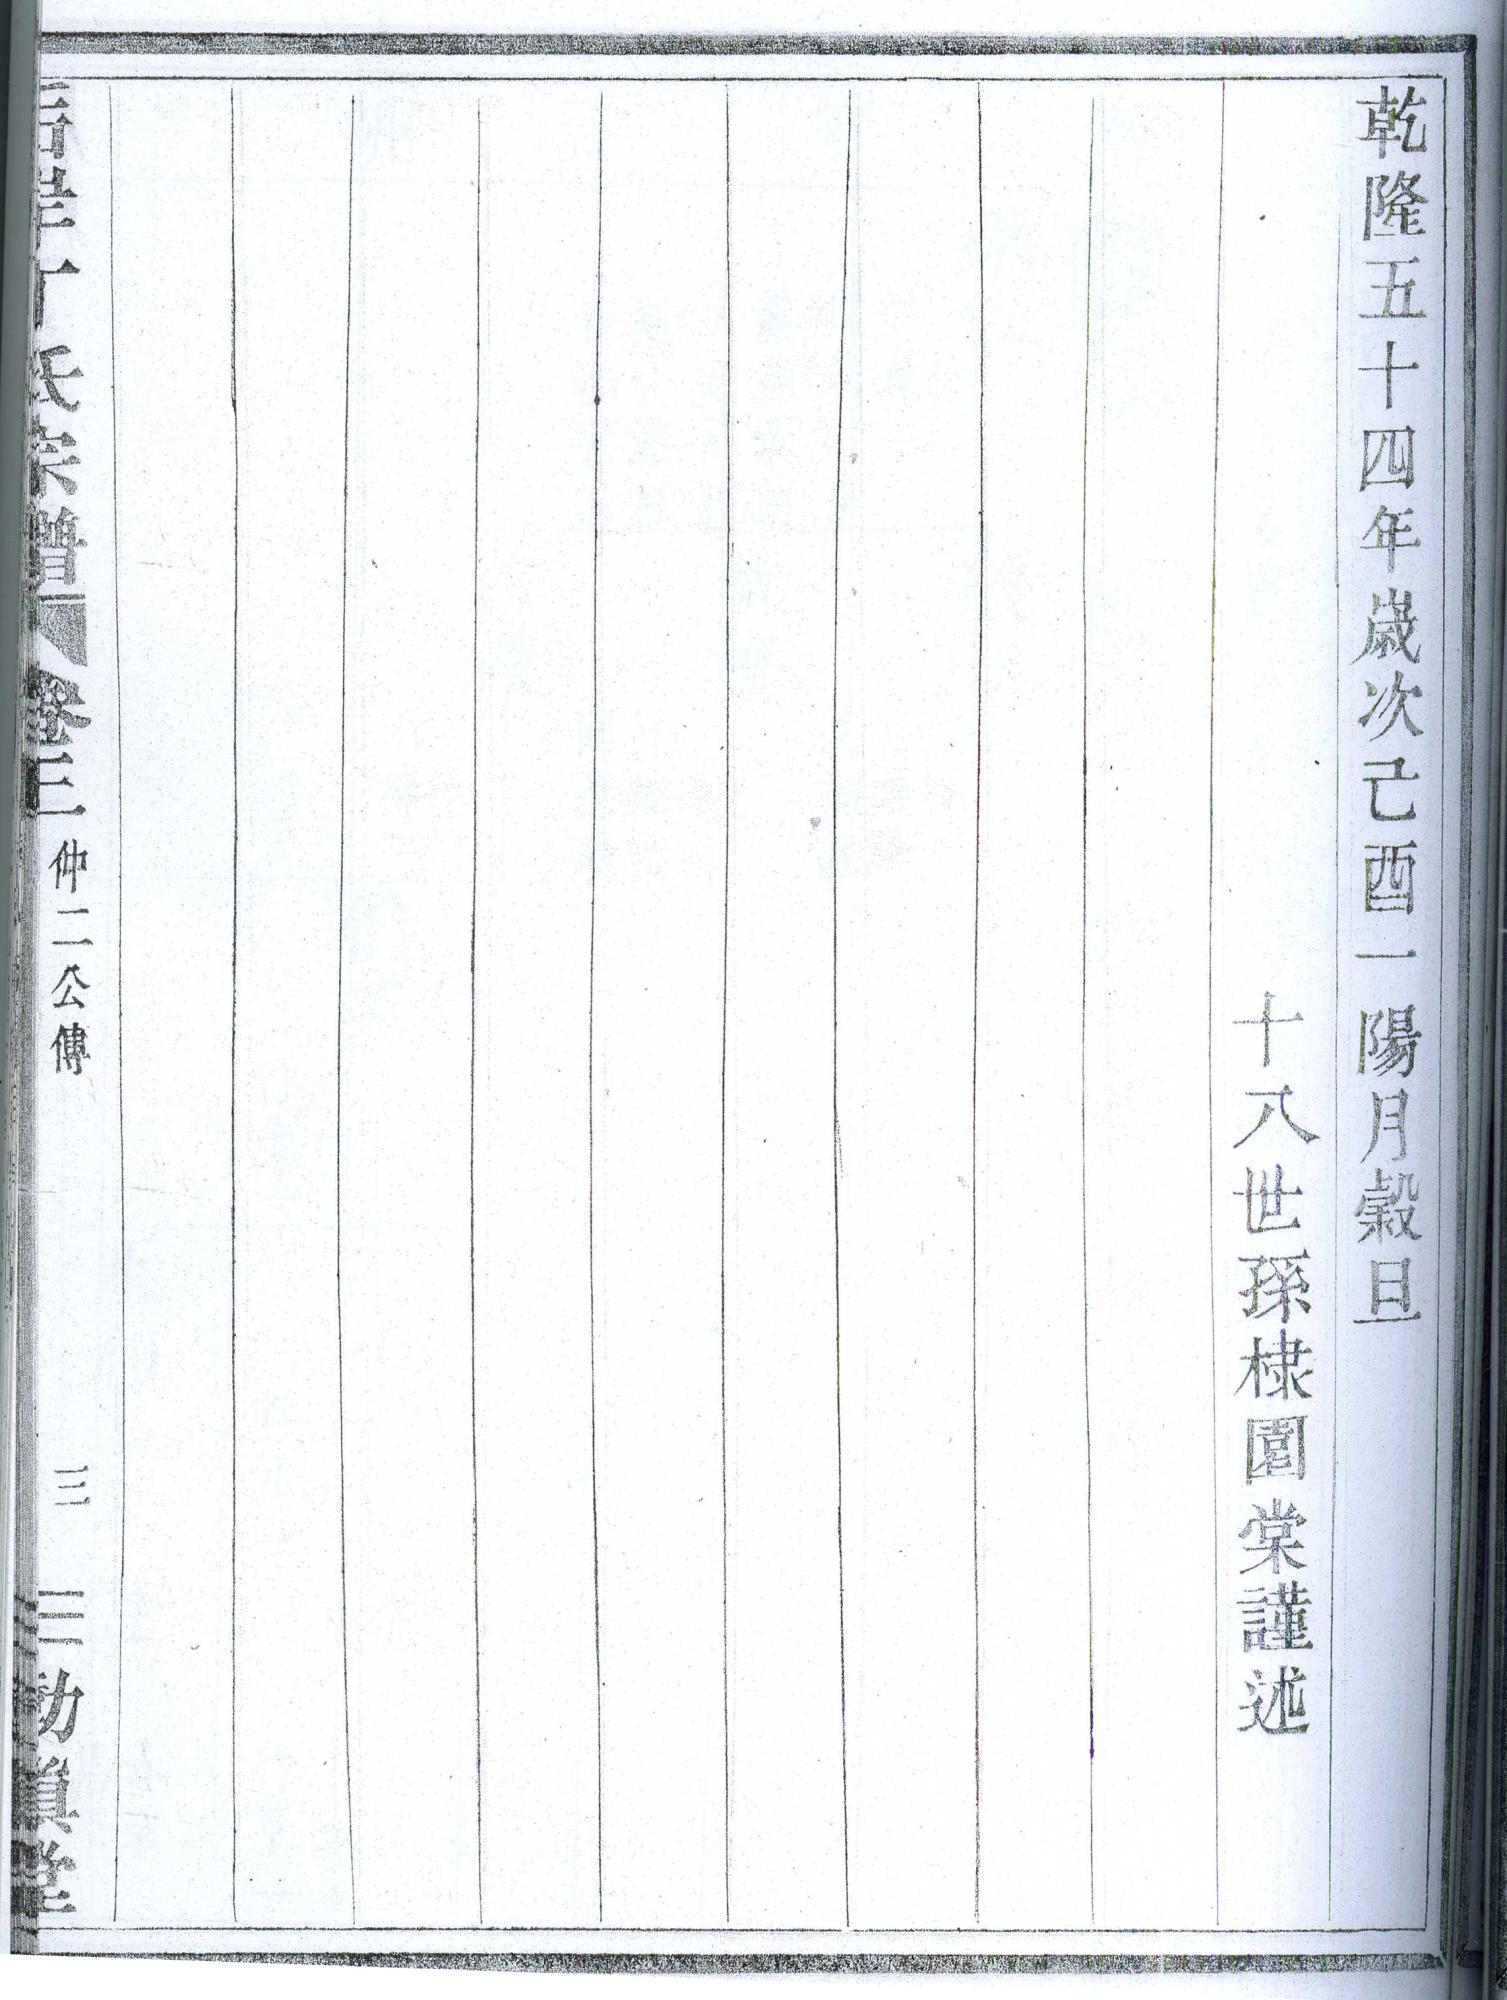 乾隆五十四年歲次己酉一陽月穀旦
十八世孫棣園棠謹述
丁氏宗譜 卷三 仲二公傳 三 三勸慎堂